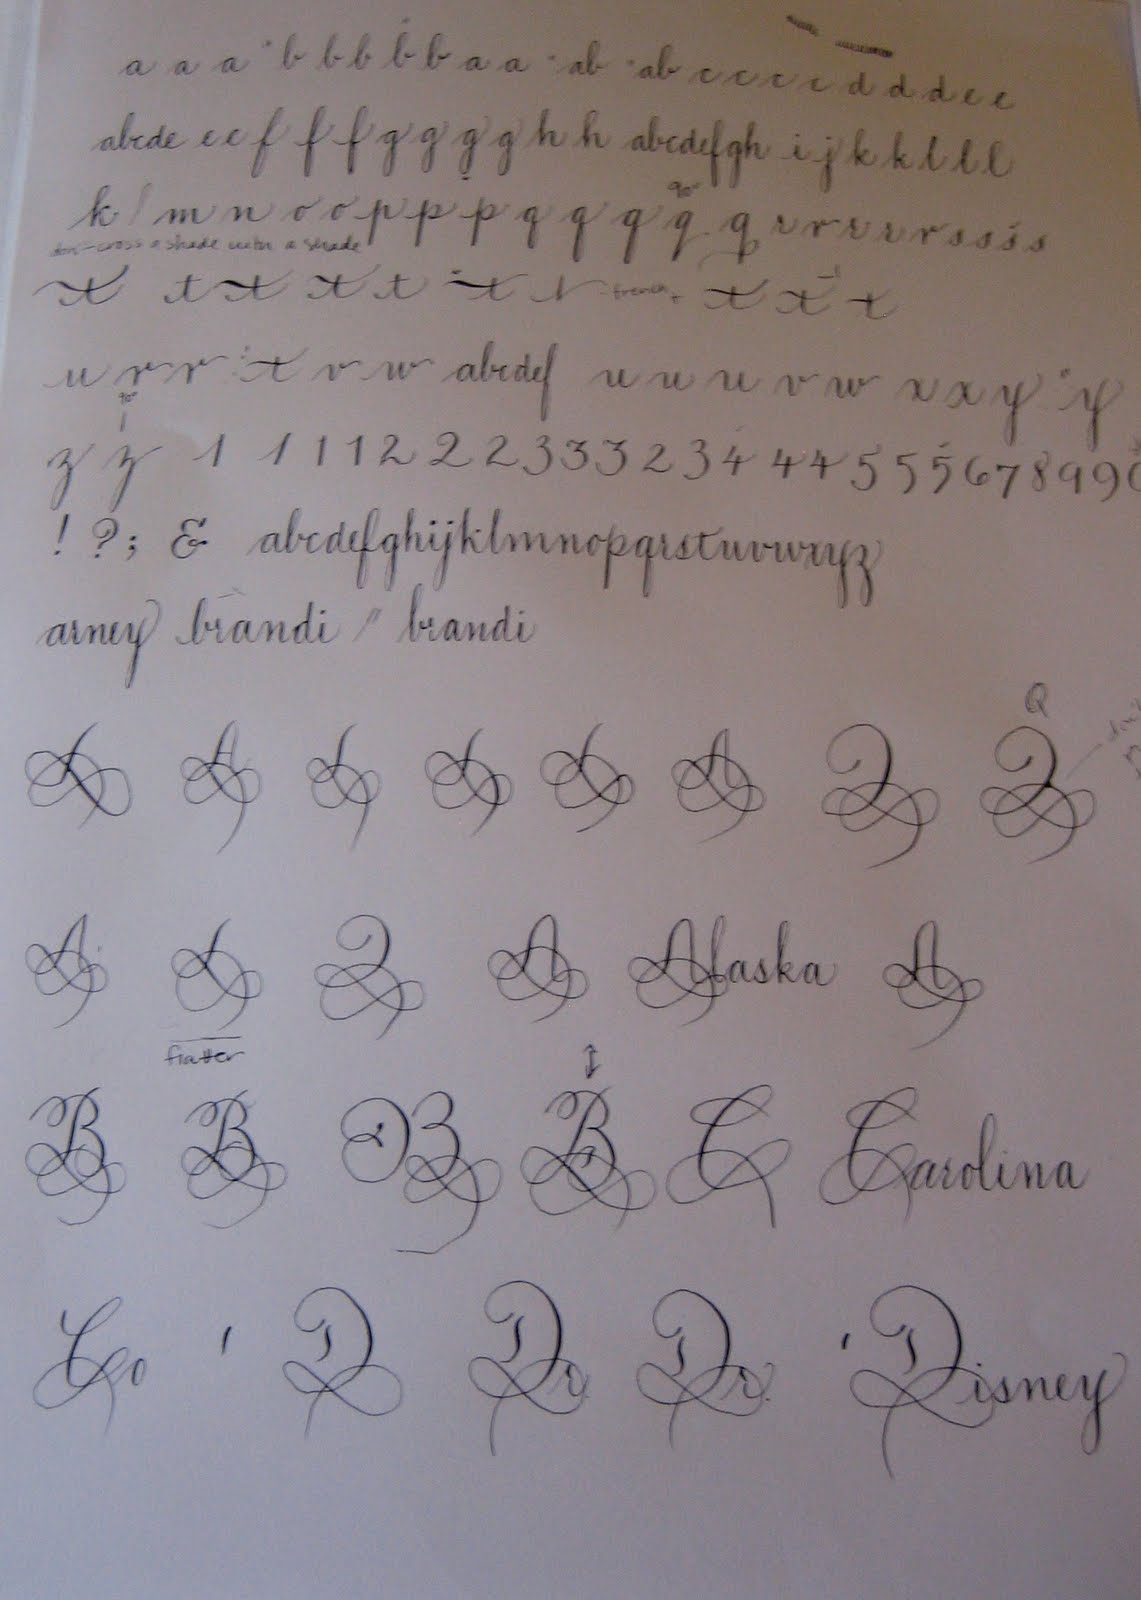 a a a b b b b b a a ab ab c c c c d d d e e
abcde e e f f f g g g g h h abcdefgh i j k k l l l
90°
k l m n o o p p p q q q q q r r r r r s s s s
don't cross a shade with a shade
t t t t t t t t t
u r r t v w abcdef u u u v w x x y y
90°
z z 1 1 1 1 2 2 2 3 3 3 2 3 4 4 4 5 5 5 6 7 8 9 9 0
! ? ; & abcdefghijklmnopqrstuvwxyz
arney brandi // brandi
Q
A A A A A A Q Q
A A Q A Alaska A
flatter
B B B B C Carolina
Co D Do Do Disney